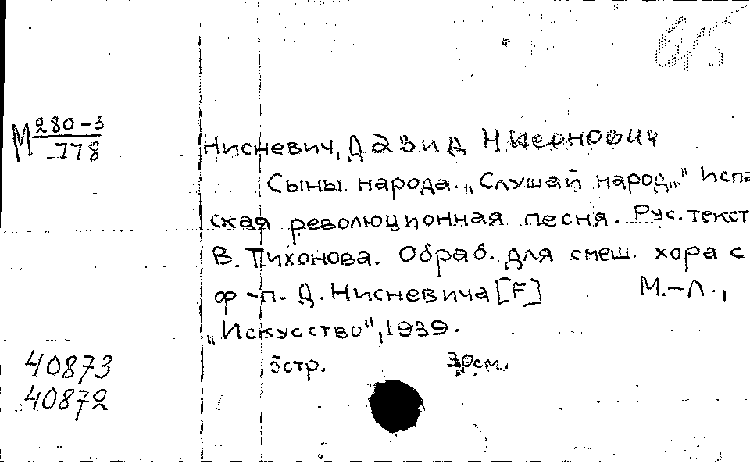 б/5
М 280-3
778
Нисневич, Давид
Сыны народа. „Слушай народ„" Испа
ская революционная песня. Рус. текст
В. Тихонова. Обраб. для смеш. хора с
ф-п. Д. Нисневича [F] М.-Л.,
„Искусство", 1939.
5 стр. 30см.
40873
40872